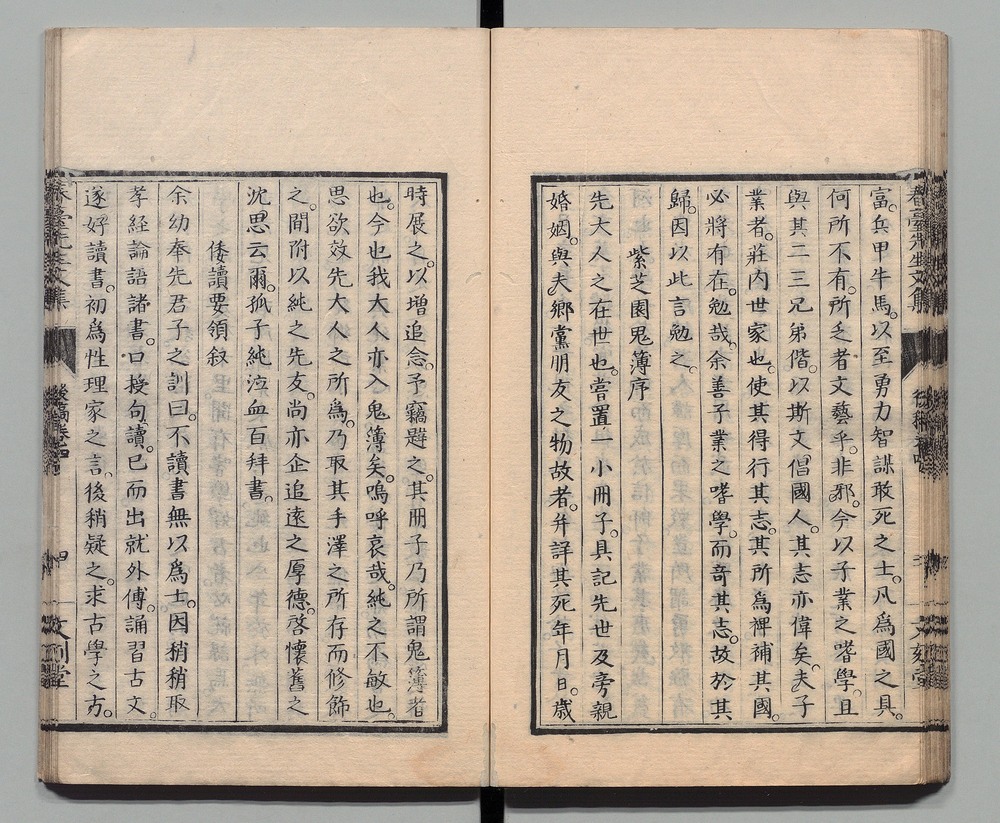 富。兵甲牛馬。以至勇力智謀敢死之士。凡爲國之具。
何所不有。所乏者文藝乎。非邪。今以子業之嗜學。且
與其二三兄弟偕。以斯文倡國人。其志亦偉矣。夫子
業者。莊內世家也。使其得行其志。其所爲裨補其國。
必將有在。勉哉。余善子業之嗜學。而奇其志。故於其
歸。因以此言勉之。
紫芝園鬼簿序
先大人之在世也。嘗置一小冊子。具記先世及旁親
婚姻。與夫鄉黨朋友之物故者。并詳其死年月日。歲
時展之。以增追念。予竊題之。其冊子乃所謂鬼簿者
也。今也我大人亦入鬼簿矣。嗚呼哀哉。純之不敏也。
思欲效先大人之所爲。乃取其手澤之所存而修飾
之。間附以純之先友。尚亦企追遠之厚德。啓懷舊之
沈思云爾。孤子純泣血百拜書。
倭讀要領敘
余幼奉先君子之訓曰。不讀書無以爲士。因稍稍取
孝經論語諸書。口授句讀。已而出就外傅。誦習古文
遂好讀書。初爲性理家之言。後稍疑之。求古學之方。
春臺先生文集
後稿卷之四
四